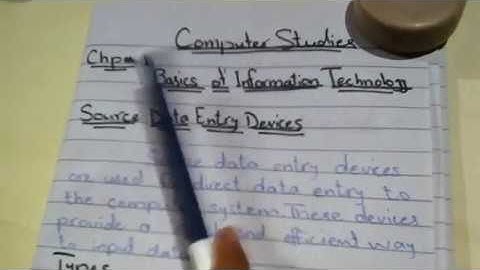 Computer Studies
Basics of Information Technology
Source Data Entry Devices
data entry devices
are used direct data entry to
the system. These devices
provide a and efficient way
to input
Types